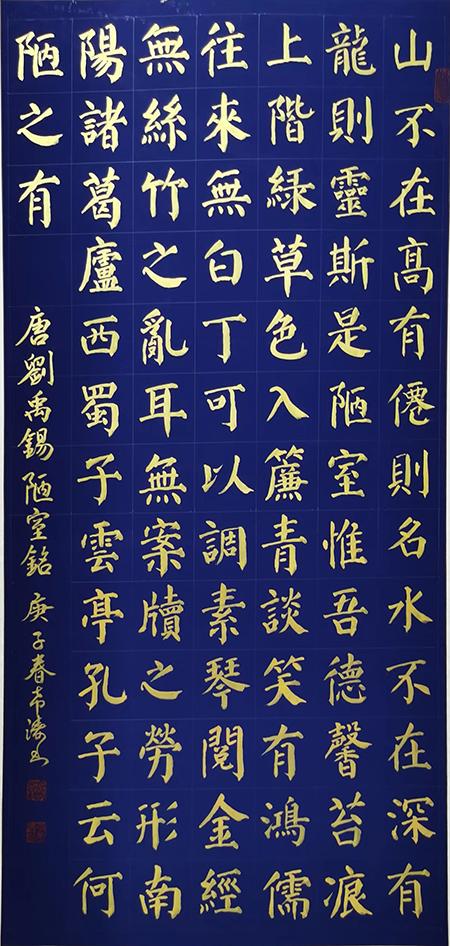 山不在髙有僊則名水不在深有
龍則靈斯是陋室惟吾德馨苔痕
上階緑草色入簾青談笑有鴻儒
往來無白丁可以調素琴閱金經
無絲竹之亂耳無案牘之勞形南
陽諸葛廬西蜀子雲亭孔子云何
陋之有
唐劉禹錫陋室銘 庚子春